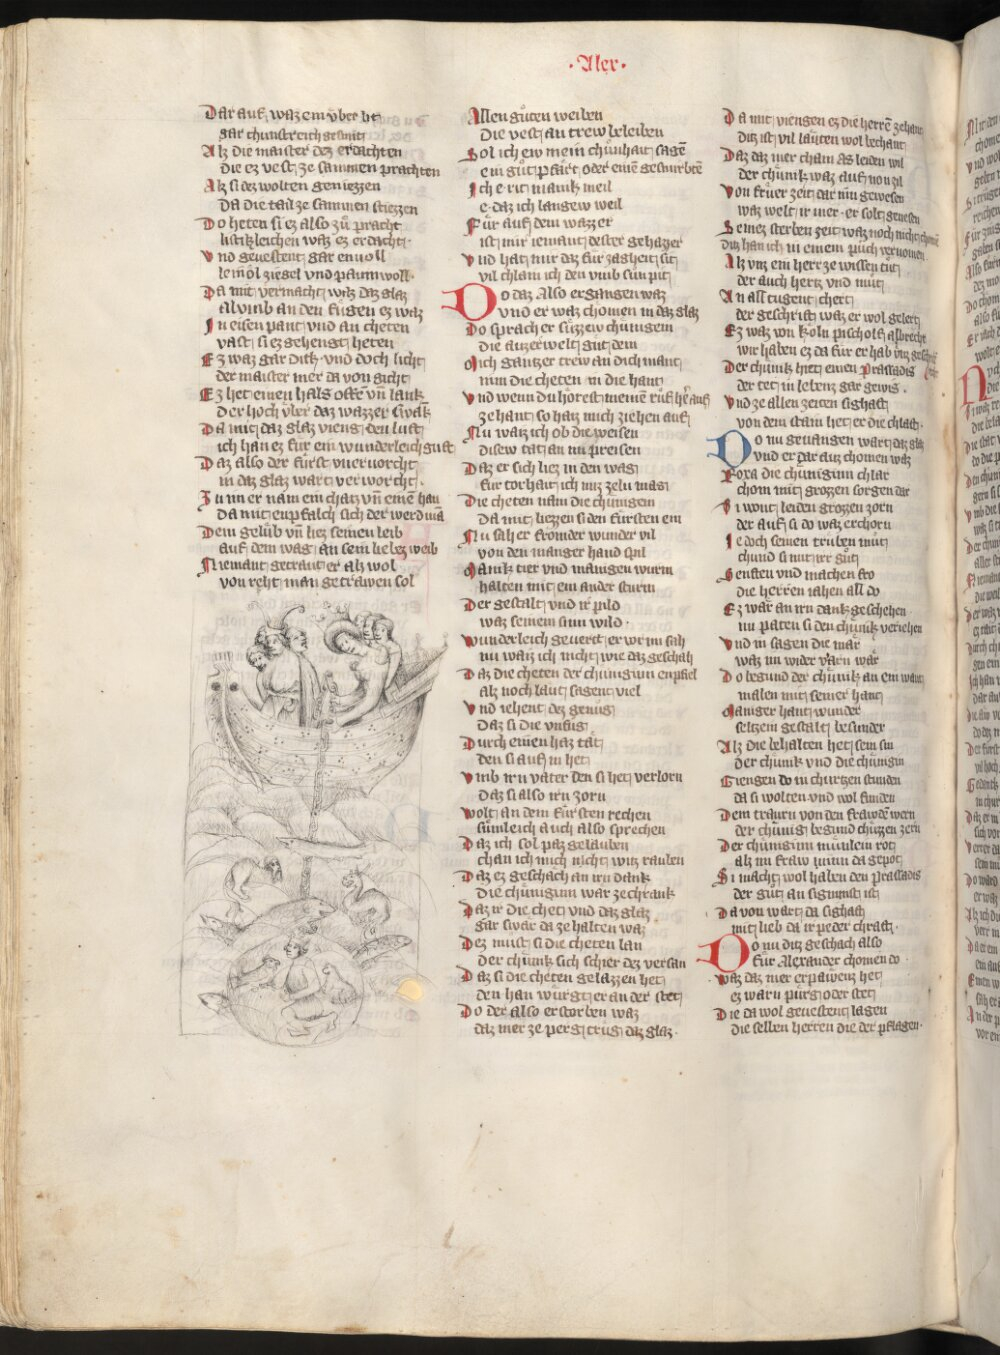 ·Alex·
Dar auf waz em vber ht
gar chunstreich gesmit
Alz die maister dez erdachten
die ez vest ze sammen prachten
Alz si dez wolten geniezzen
Da die tail ze sammen stiezzen
Do heten si ez also zů pracht
listikleichen waz ez erdacht·
Vnd geuestent gar en voll
leinöl ziegel vnd paumwoll·
Da mit vermacht waz daz glaz
alvmb an den fůgen ez waz
In eisen pant vnd an cheten
vast si ez gehengt heten
Ez waz gar dikh vnd doch licht
der maister mer da von gicht
Ez het einen hals offē vn̄ lank
Der hoch v̈ber daz wazzer swāk
Da mit daz glaz vieng den luft
ich han ez fur ein wunderleich guft
Daz also der furst vneruorcht
in daz glaz wart verworcht·
Zu im er nam ein chatz vn̄ einē han
da mit enpfalch sich der werd mā
Dem gelůb vn̄ liez seinen leib
auf dem wag an sein liebez weib
Niemant getraut er alz wol
von reht man getrawen sol
Allen gůten weiben
Die vest an trew beleiben
Sol ich ew mein chůnhait sagē
ein gůt pfärt oder einē gesnurbtē
Ich e rit manik meil
e daz ich langew weil
Fůr auf dem wazzer
ist mir iemant dester gehazzer
Vnd hat mir daz für zaghent sit
vil chlain ich den vmb sün pit
Do daz also ergangen waz
vnd er waz chomen in daz glaz
Do sprach er süzzew chunigein
die auzerwelt gůt dein
Mich gantzer trew an dich mant
nim die cheten in die hant
Vnd wenn du hörest meinē růf h'auf
ze hant so haiz mich ziehen auf
Nu waiz ich ob die weisen
disew tat an im preisen
Daz er sich liez in den wag
für torhait ich im zelu mag
Die cheten nam die chunigein
Da mit liezzen si den fürsten ein
Nu sah er frömder wunder vil
von den maniger hand spil
Manik tier vnd manigen wurm
halten mit ein ander sturm
Der gestalt vnd ir pild
waz seinem sinn wild·
Wunderleich geuerft er vor im sah
nu waiz ich nicht wie daz geschah
Daz die cheten der chunigiun enpfiel
alz noch laut sagent viel
Vnd iehent dez genůg
Daz si die vnfůg
Durch einen haz tät
den si auf in het
Vmb irn vater den si het verlorn
Daz si also irn zorn
Wolt an dem fursten rechen
sümleich auch also sprechen
Daz ich sol paz gelauben
chan ich mich nicht witz rauben
Daz ez geschach an irn dank
die chünigiun war ze chrank
Daz ir die chet vnd daz glaz
gar swär da ze halten waz
Dez must si die cheten lan
der chunk sich schier dez versan
Daz si die cheten gelazzen het
den han wůrgt er an der stet
Do der also erstorben waz
daz mer ze perg trůg daz glaz·
Da mit viengen ez die herrē ze hant
ditz ist vil lauten wol bechant
Daz daz mer cham as leiden wil
der chünk waz auf non zil
Von frůer zeit dar inn gewesen
waz welt ir mer er solt genesen
Seinez sterben zeit waz noch nicht chomē
ditz han ich in einem půch vernomen
Alz vnz ein herr ze wissen tůt
der auch hertz vnd můt
An all tugent chert
der geschrift waz er wol gelert
Ez waz von Köln pischolf albrecht
wir haben ez da für er hab vnz geseit
Der chünk hiet einen Prassadis
der tet in lebenz gar gewis·
Vnd ze allen zeiten sighaft
von dem stain het er die chraft·
Do nu geuangen wart daz glaz
vnd er dar auz chomen waz
Roxa die chünigiun chlar
chom mit grozzen sorgen dar
Si vorht leiden grozzen zorn
der auf si do waz erchorn
Iedoch seinen trüben můt
chund si mit irr gůt
Senften vnd machen fro
die herren iahen all do
Ez wär an irn dank geschehen·
nu paten si den chünik veriehen
Vnd in sagen die mär
waz im wider varn wär
Do begund der chünik an ein want
malen mit seiner hant
Maniger hant wunder
seltzein gestalt besunder
Alz die behalten het sein sin
der chünk vnd die chünigin
Giengen do in churtzen stunden
da si wolten vnd wol funden
Dem traurn von den fräwdē wern
der chünig begund chüzzen gern
Der chünigiun münlein rot
alz im fraw minn da gepot
Si macht wol haben den Prassadis
der gůt an sigunst ist
Da von wart da sighaft
mit lieb da ir peder chraft·
Do nu ditz geschach also
Für Alexander chomen do·
Waz daz mer erpawenz het
ez warn pürg oder stet
Die da wol geuestent lagen
die selben herren die der pflagen·